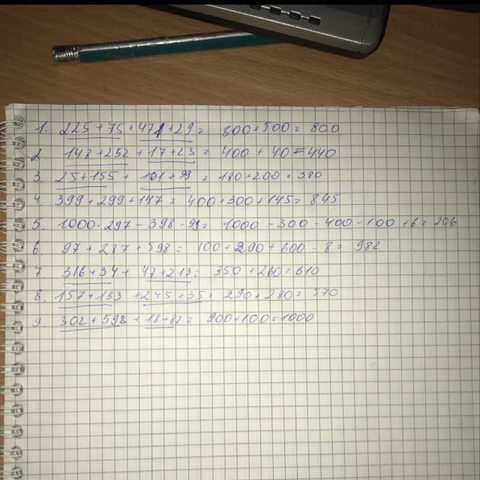 1. 225 + 75 + 471 + 29 = 300 + 500 = 800
2. 148 + 252 + 17 + 23 = 400 + 40 = 440
3. 25 + 155 + 101 + 99 = 180 + 200 = 380
4. 399 + 299 + 147 = 400 + 300 + 145 = 845
5. 1000 - 297 - 398 - 99 = 1000 - 300 - 400 - 100 + 6 = 206
6. 97 + 287 + 598 = 100 + 290 + 600 - 8 = 982
7. 316 + 34 + 47 + 213 = 350 + 260 = 610
8. 157 + 133 + 245 + 35 = 290 + 280 = 570
9. 302 + 598 + 18 + 82 = 900 + 100 = 1000